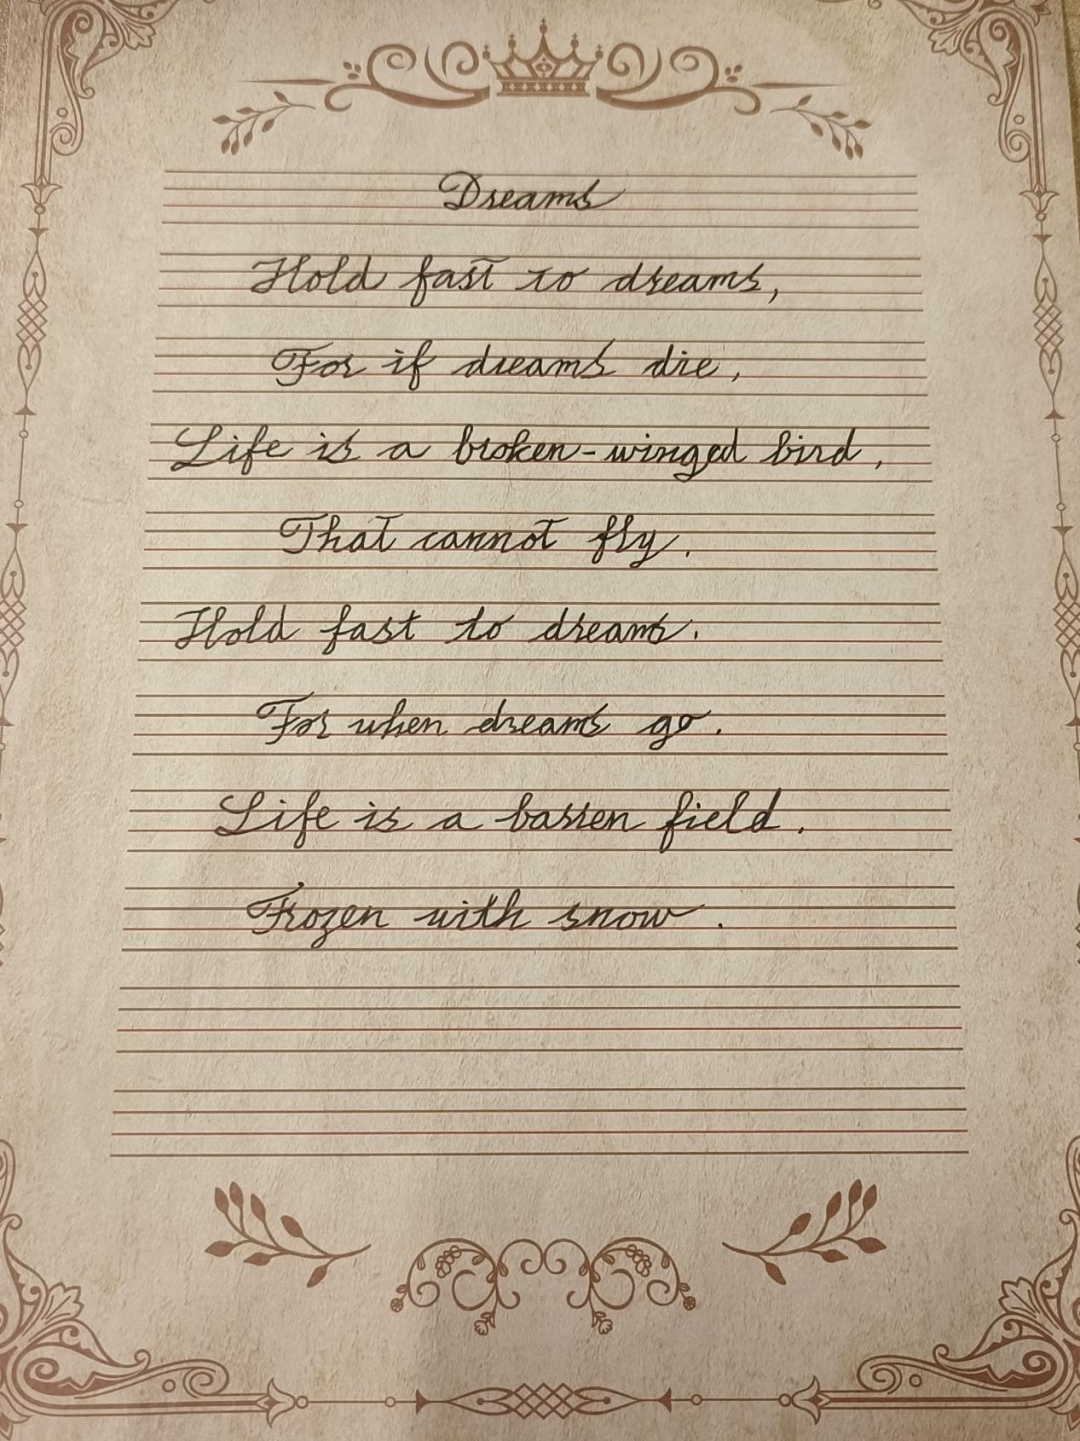 Dreams
Hold fast to dreams,
For if dreams die,
Life is a broken-winged bird,
That cannot fly.
Hold fast to dreams.
For when dreams go.
Life is a barren field.
Frozen with snow.